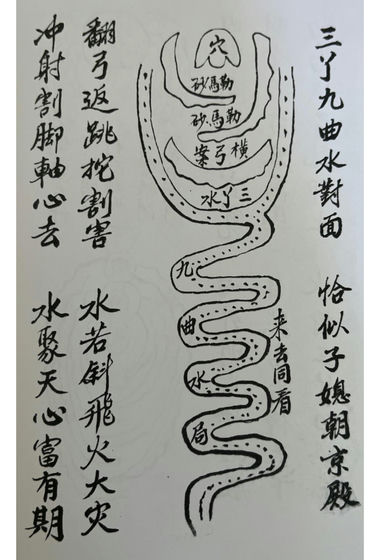 三丫九曲水對面 恰似子媳朝京殿
穴
勒馬砂
勒馬砂
横弓案
三丫水
九曲水局
来去同看
翻弓返跳挖割害 水若斜飛火大灾
冲射割脚軸心去 水聚天心富有期